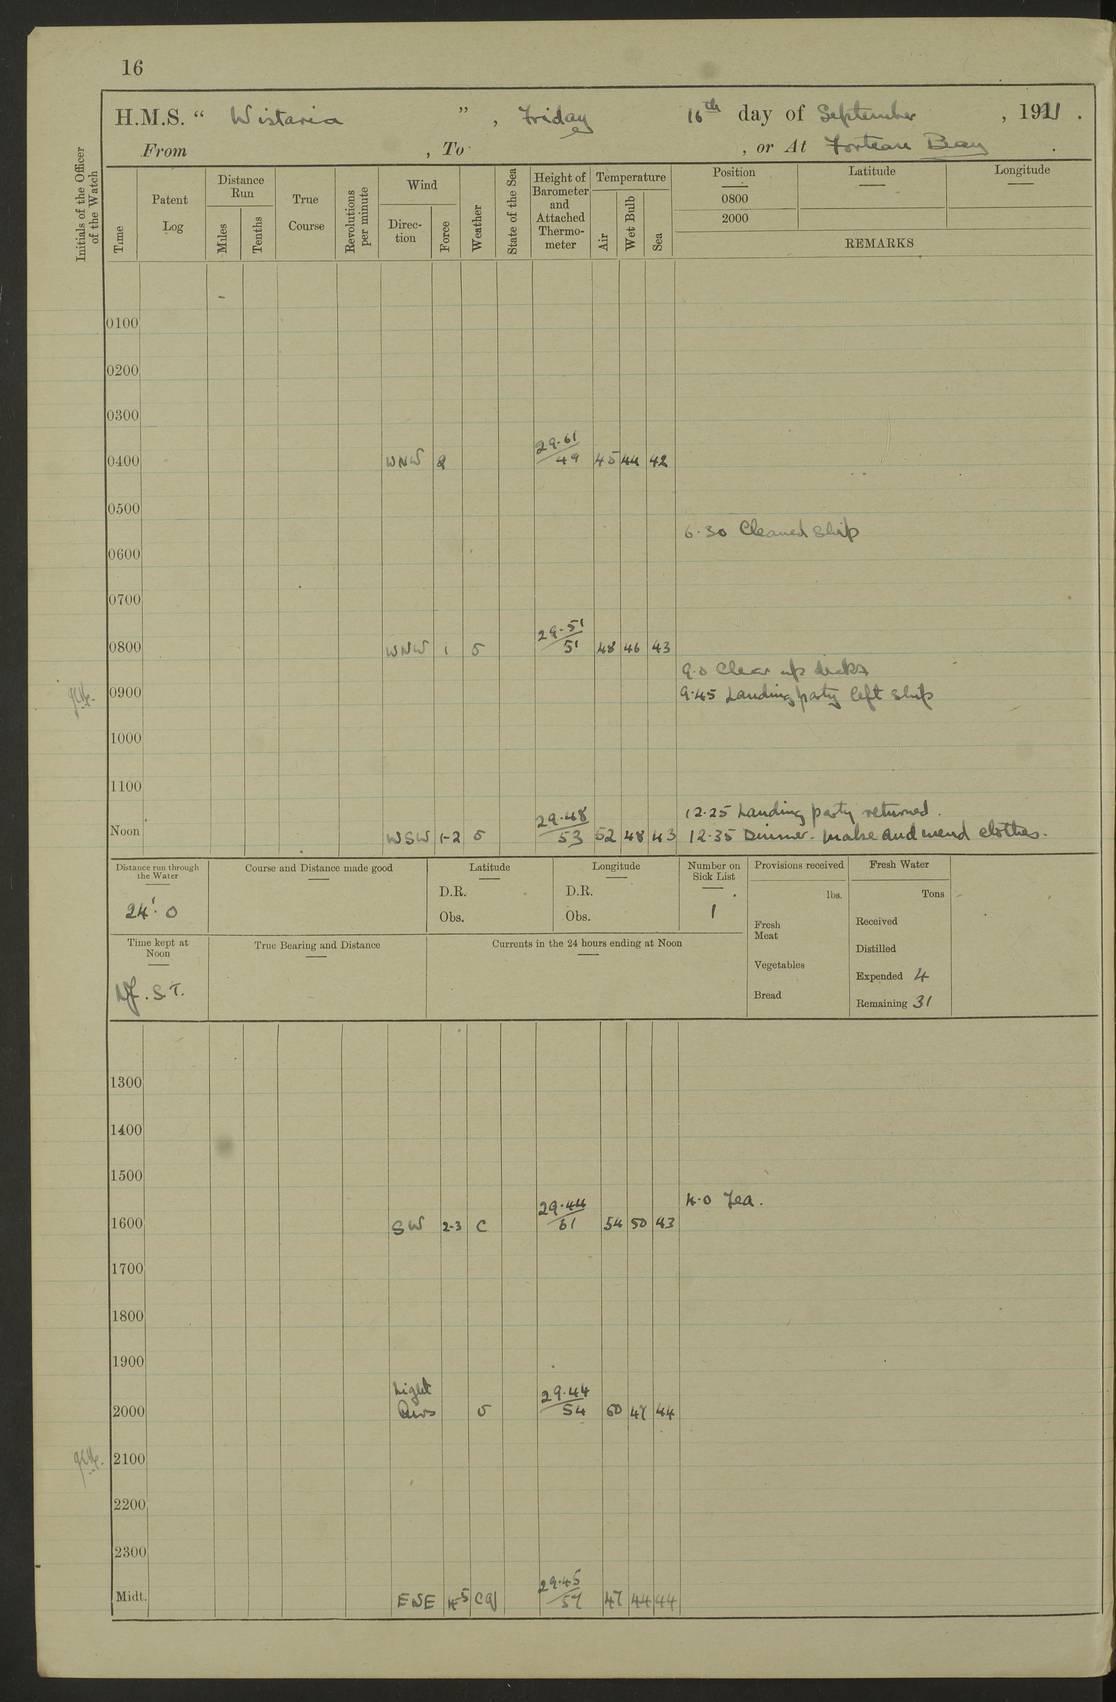 16
H.M.S. “ Wistaria ” , Friday 16th day of September , 1921 .
From , To , or At Forteau Bay .
Initials of the Officer of the Watch
Time
Patent Log
Distance Run
Miles
Tenths
True Course
Revolutions per minute
Wind
Direc- tion
Force
Weather
State of the Sea
Height of Barometer and Attached Thermo- meter
Temperature
Air
Wet Bulb
Sea
Position
0800
2000
Latitude
Longitude
REMARKS
0100
0200
0300
29.61
0400 WNW 2 49 45 44 42
0500
6.30 Cleaned Ship
0600
0700
29.51
0800 WNW 1 o 51 48 46 43
9.0 Clear up decks
0900 9.45 Landing party left ship
1000
1100
29.48 12.25 Landing party returned.
Noon WSW 1-2 o 53 52 48 43 12.35 Dinner. Make and mend clothes.
Distance run through the Water
24'.0
Course and Distance made good
Latitude
D.R.
Obs.
Longitude
D.R.
Obs.
Number on Sick List
1
Provisions received
lbs.
Fresh Meat
Vegetables
Bread
Fresh Water
Tons
Received
Distilled
Expended 4
Remaining 31
Time kept at Noon
Nf. S.T.
True Bearing and Distance
Currents in the 24 hours ending at Noon
1300
1400
1500
29.44 4.0 Tea.
1600 SW 2-3 C 61 54 50 43
1700
1800
1900
Light 29.44
2000 Airs o 54 50 47 44
2100
2200
2300
29.45
Midt. ENE 4-5 cq 57 47 44 44